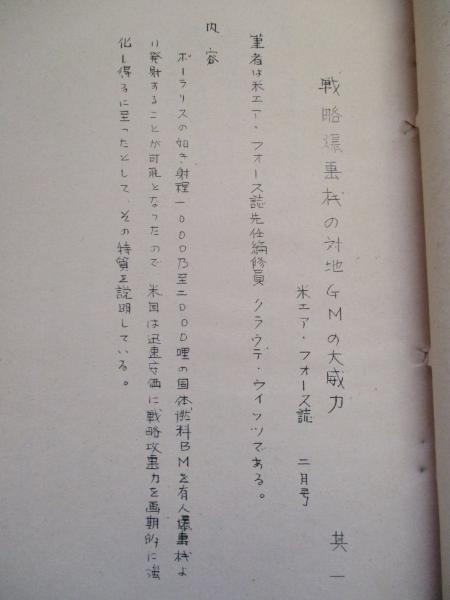 戦略爆撃機の対地GMの大威力 其一
米エア・フォース誌 二月号
筆者は米エア・フォース誌先任編修員 クラウデ・ウイッツである。
内容
ポーラリスの如き射程一〇〇〇乃至二〇〇〇哩の固体燃料BMを有人爆撃機よ
り発射することが可能となったので 米国は迅速安価に戦略攻撃力を画期的に強
化し得るに至ったとして、その特質を説明している。